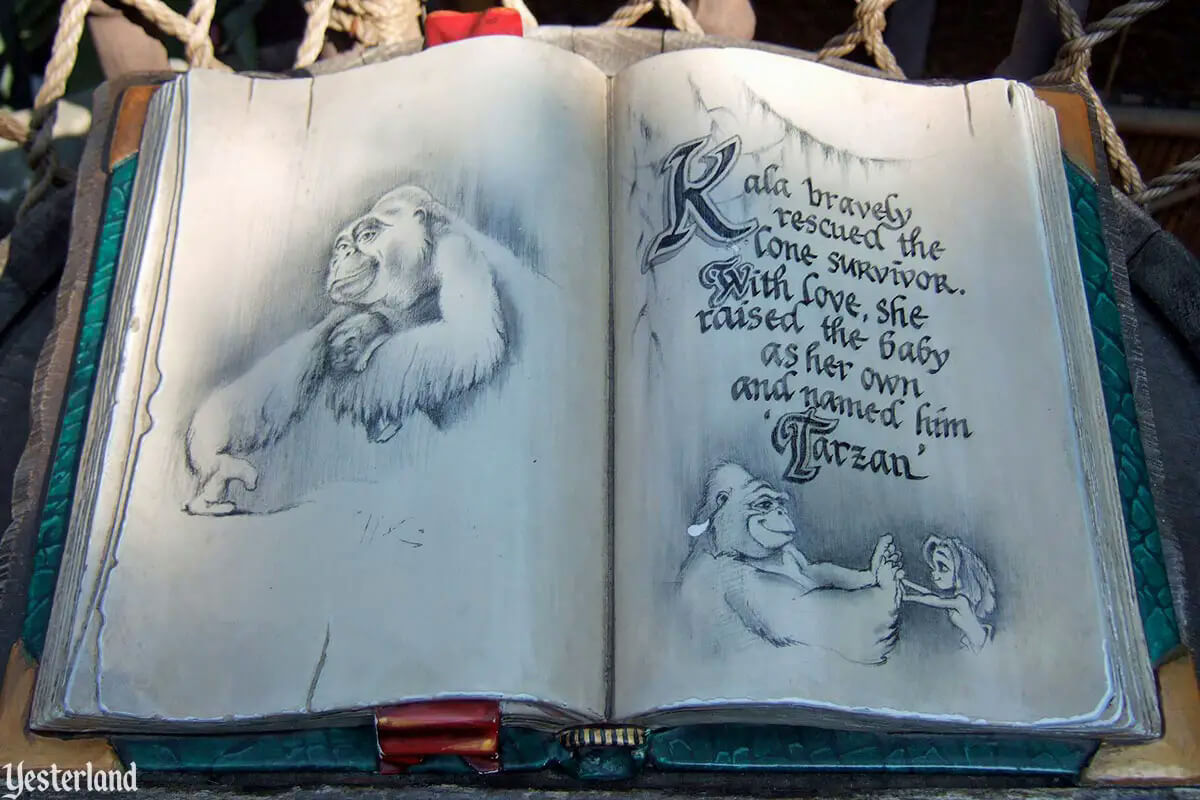 Kala bravely
rescued the
lone survivor.
With love, she
raised the baby
as her own
and named him
'Tarzan'
Yesterland